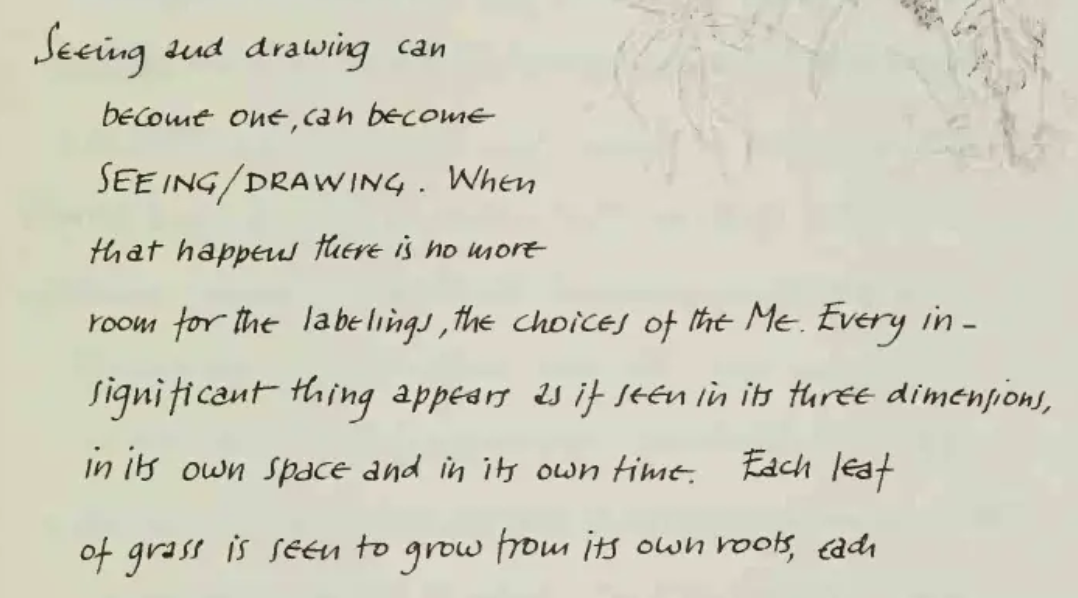 Seeing and drawing can
become one, can become
SEEING/DRAWING. When
that happens there is no more
room for the labelings, the choices of the Me. Every in-
significant thing appears as if seen in its three dimensions,
in its own space and in its own time. Each leaf
of grass is seen to grow from its own roots, each